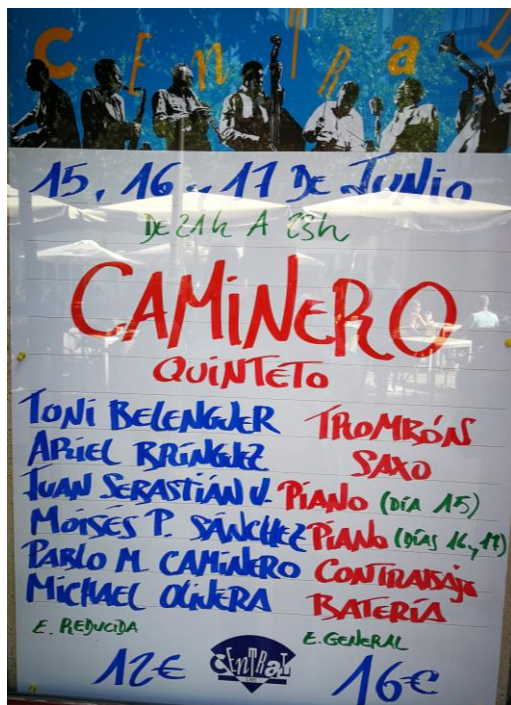 CENTRAL
15, 16 y 17 DE JUNIO
DE 21h A 23h
CAMINERO
QUINTETO
TONI BELENGUER TROMBÓN
ARIEL BRÍNGUEZ SAXO
JUAN SEBASTIÁN V. PIANO (DÍA 15)
MOISÉS P. SÁNCHEZ PIANO (DÍAS 16 y 17)
PABLO M. CAMINERO CONTRABAJO
MICHAEL OLIVERA BATERÍA
E. REDUCIDA E. GENERAL
12€ CENTRAL 16€